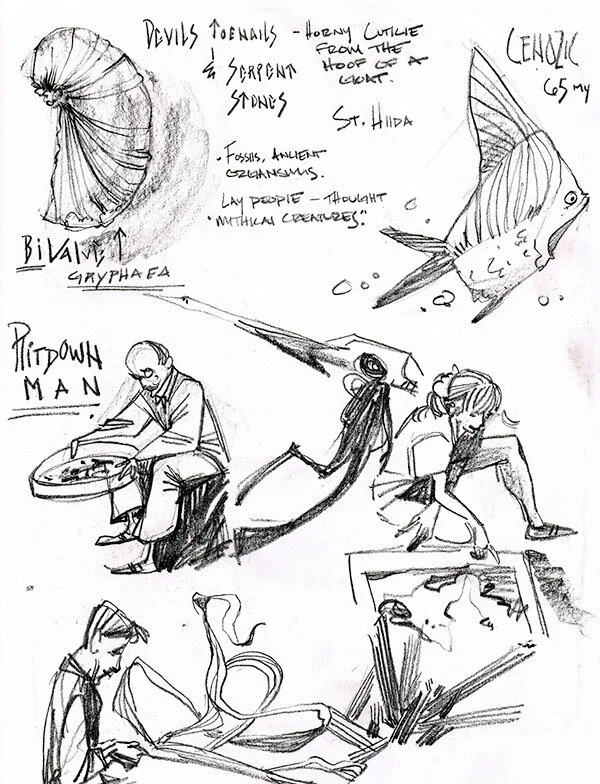 DEVILS TOENAILS - HORNY CUTICLE
FROM THE
HOOF OF A
GOAT.
& SERPENT
STONES
CENOZIC
65 MY
ST. HILDA
• FOSSILS, ANCIENT
ORGANISMS.
LAY PEOPLE - THOUGHT
"MYTHICAL CREATURES".
BIVALVE ↑
GRYPHAEA
PILTDOWN
MAN